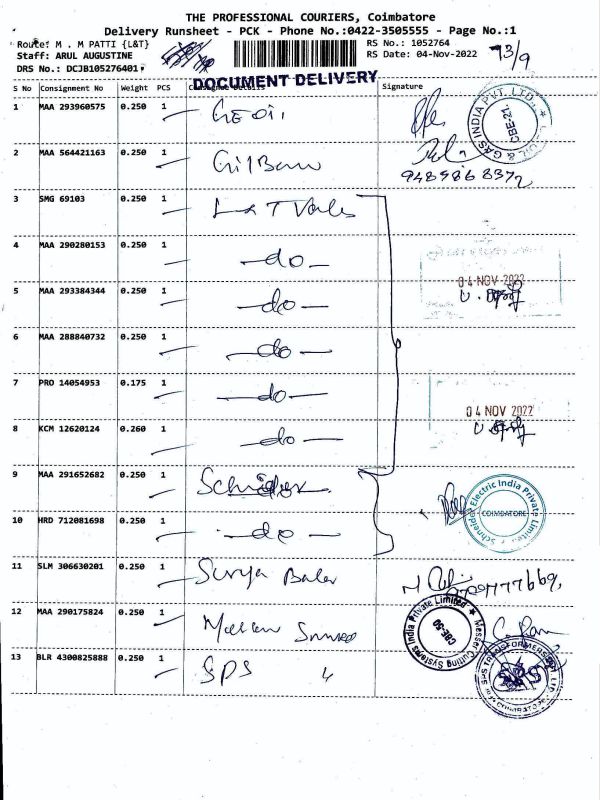 THE PROFESSIONAL COURIERS, Coimbatore
Delivery Runsheet - PCK - Phone No.:0422-3505555 - Page No.:1
Route: M . M PATTI {L&T} RS No.: 1052764
Staff: ARUL AUGUSTINE RS Date: 04-Nov-2022 93/9
DRS No.: DCJB105276401
DOCUMENT DELIVERY
S No Consignment No Weight PCS Signature
1 MAA 293960575 0.250 1
2 MAA 564421163 0.250 1
3 SMG 69103 0.250 1 L&T Valves
4 MAA 290280153 0.250 1 -do-
04 NOV 2022
5 MAA 293384344 0.250 1 -do-
6 MAA 288840732 0.250 1 -do-
7 PRO 14054953 0.175 1 -do-
04 NOV 2022
8 KCM 12620124 0.260 1 -do-
9 MAA 291652682 0.250 1
Schneider Electric India Private Limited
COIMBATORE
10 HRD 712081698 0.250 1 -do-
11 SLM 306630201 0.250 1 Surya
12 MAA 290175824 0.250 1
Messer Cutting Systems India Private Limited
CBE-50
13 BLR 4300825888 0.250 1 SPS
SPS TRANSFORMERS
SPS